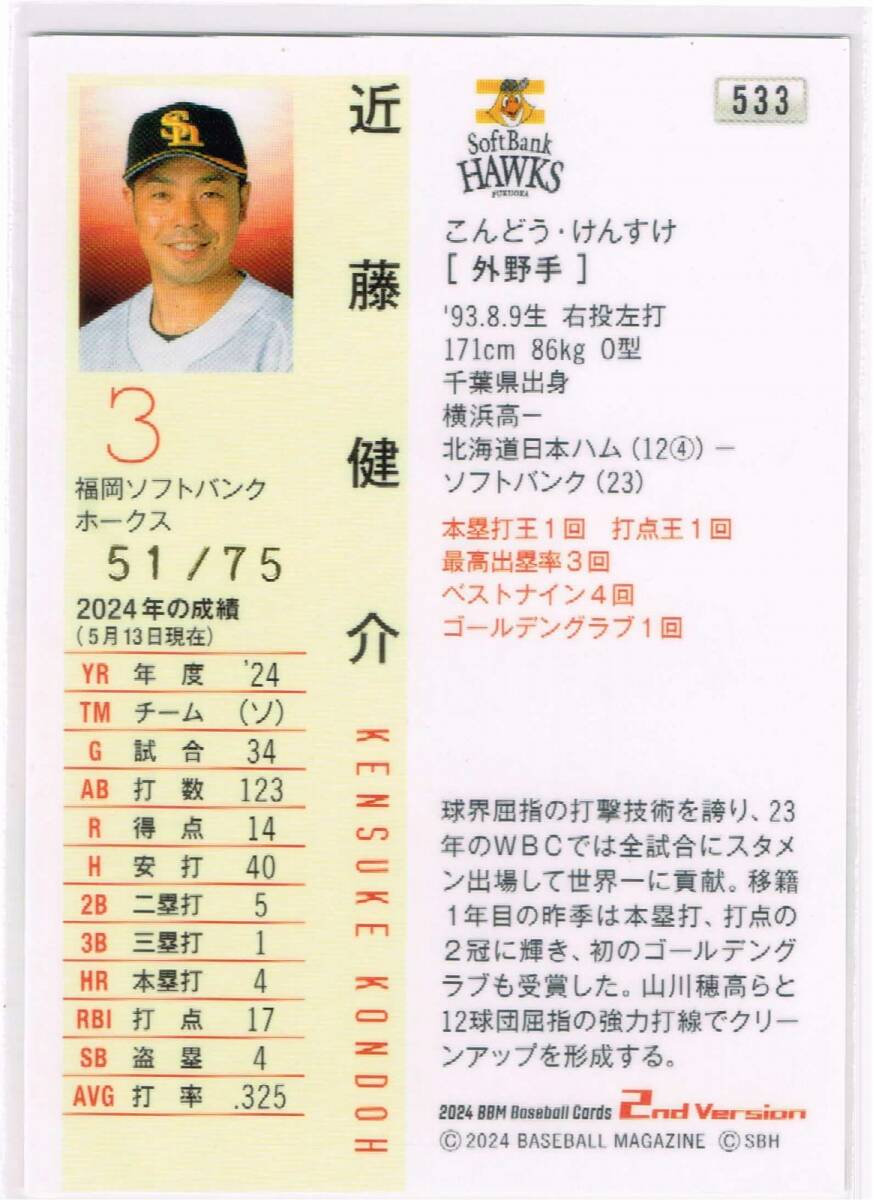 近藤健介
KENSUKE KONDOH
3
福岡ソフトバンク
ホークス
51/75
2024年の成績
(5月13日現在)
YR 年度 '24
TM チーム (ソ)
G 試合 34
AB 打数 123
R 得点 14
H 安打 40
2B 二塁打 5
3B 三塁打 1
HR 本塁打 4
RBI 打点 17
SB 盗塁 4
AVG 打率 .325
Sh
SoftBank
HAWKS
FUKUOKA
533
こんどう・けんすけ
[ 外野手 ]
'93.8.9生 右投左打
171cm 86kg O型
千葉県出身
横浜高－
北海道日本ハム(12④)－
ソフトバンク(23)
本塁打王1回 打点王1回
最高出塁率3回
ベストナイン4回
ゴールデングラブ1回
球界屈指の打撃技術を誇り、23
年のWBCでは全試合にスタメ
ン出場して世界一に貢献。移籍
1年目の昨季は本塁打、打点の
2冠に輝き、初のゴールデング
ラブも受賞した。山川穂高らと
12球団屈指の強力打線でクリー
ンアップを形成する。
2024 BBM Baseball Cards 2nd Version
©2024 BASEBALL MAGAZINE ©SBH